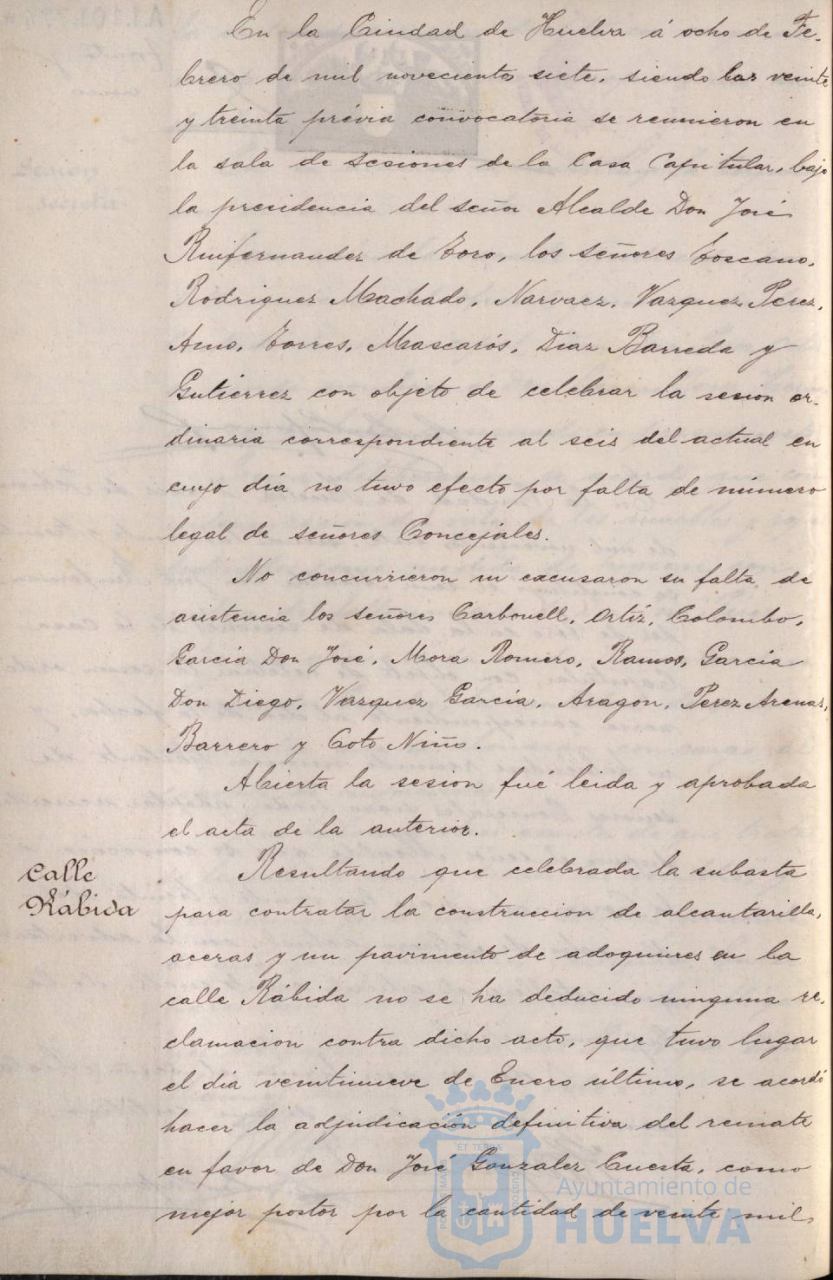 En la Ciudad de Huelva á ocho de Fe-
brero de mil novecientos siete, siendo las veinte
y treinta prévia convocatoria se reunieron en
la sala de sesiones de la Casa Capitular, bajo
la presidencia del señor Alcalde Don José
Ruifernandez de Toro, los señores Toscano,
Rodriguez Machado, Narvaez, Vazquez Perez,
Amo, Torres, Mascarós, Diaz Barreda y
Gutiérrez con objeto de celebrar la sesion or-
dinaria correspondiente al seis del actual en
cuyo día no tuvo efecto por falta de número
legal de señores Concejales.
No concurrieron ni excusaron su falta de
asistencia los señores Carbonell, Ortíz, Colombo,
García Don José, Mora Romero, Ramos, García
Don Diego, Vazquez García, Aragon, Perez Arenas,
Barrero y Coto Niño.
Abierta la sesion fué leida y aprobada
el acta de la anterior.
Calle
Rábida
Resultando que celebrada la subasta
para contratar la construccion de alcantarilla,
aceras y un pavimento de adoquines en la
calle Rábida no se ha deducido ninguna re-
clamacion contra dicho acto, que tuvo lugar
el día veintinueve de Enero último, se acordó
hacer la adjudicación definitiva del remate
en favor de Don José Gonzalez Cuesta, como
mejor postor por la cantidad de veinte mil
Ayuntamiento de
HUELVA